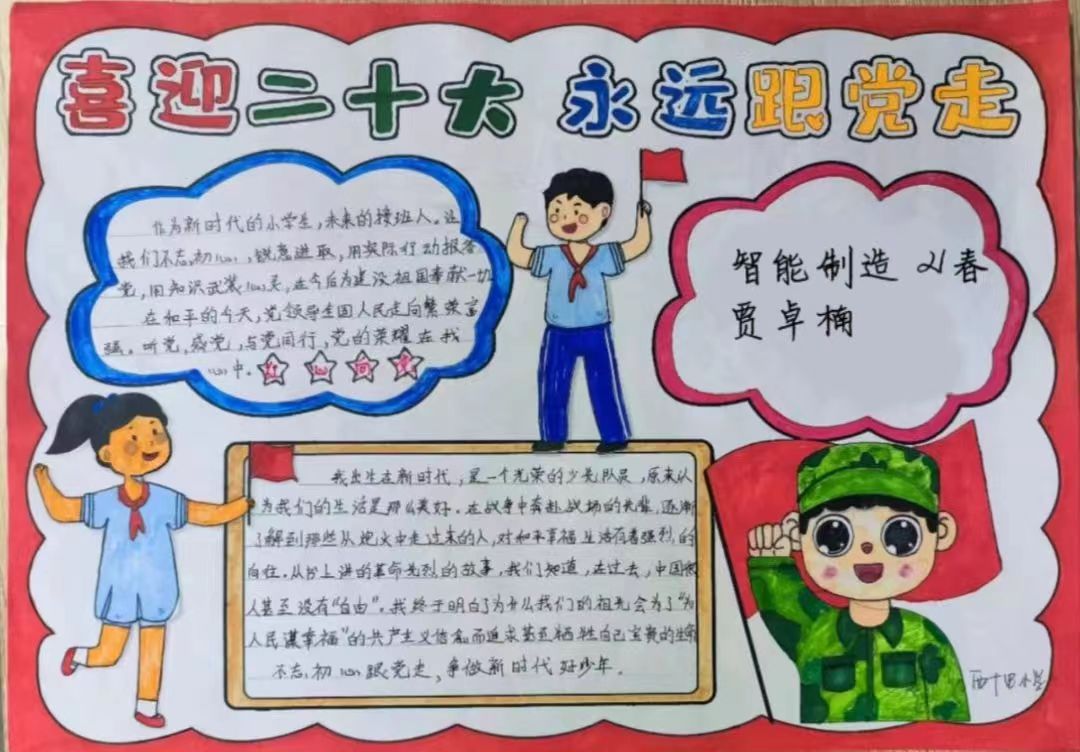 喜迎二十大 永远跟党走
作为新时代的小学生,未来的接班人。让
我们不忘初心,锐意进取,用实际行动报答
党,用知识武装心灵,在今后为建设祖国奉献一切
在和平的今天,党领导全国人民走向繁荣富
强。听党,感党,与党同行,党的荣耀在我
心中。 红心向党
智能制造 21春
贾卓楠
我出生在新时代,是一个光荣的少先队员,原来认
为我们的生活是那么美好。在战争中奔赴战场的先辈,逐渐
了解到那些从炮火中走过来的人,对和平幸福生活有着强烈的
向往。从台上讲的革命先烈的故事,我们知道,在过去,中国
人甚至没有“自由”。我终于明白了为什么我们的祖先会为了“为
人民谋幸福”的共产主义信念而追求甚至牺牲自己宝贵的生命
不忘初心跟党走,争做新时代好少年。
小学